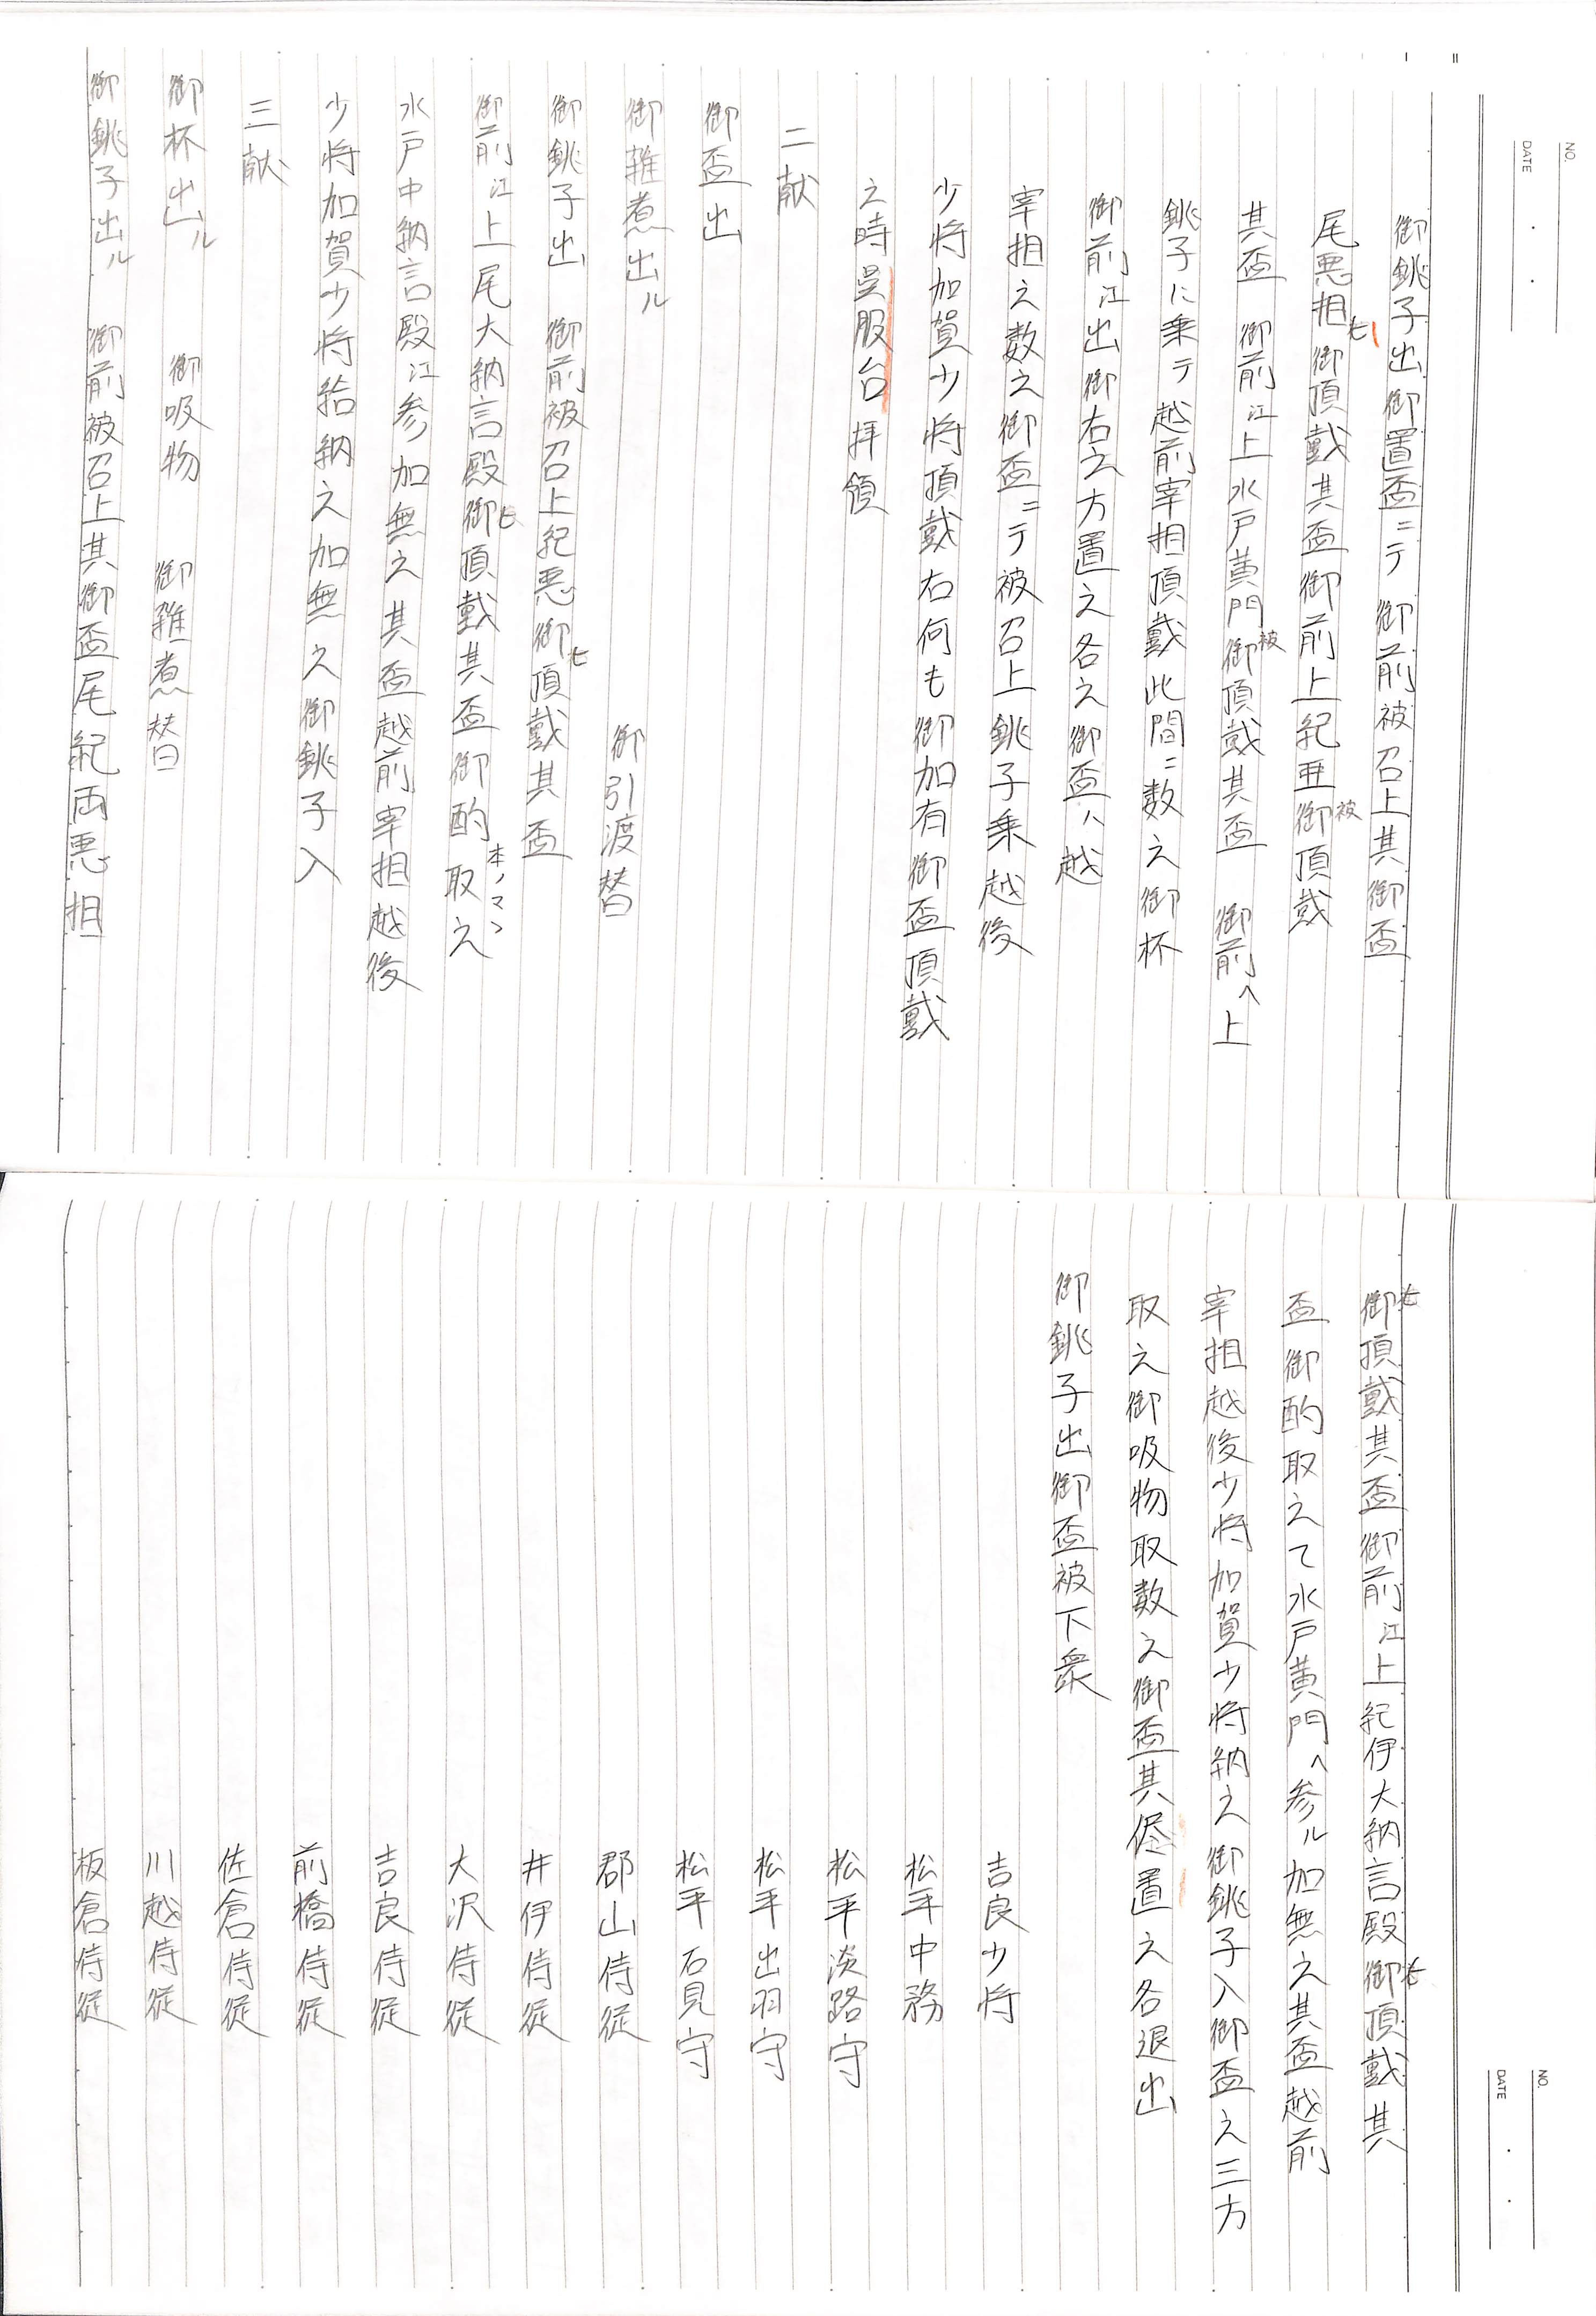 NO.
DATE
御銚子出御置盃ニテ 御前被召上其御盃
尾悪相御頂戴其盃御前上紀亜御頂戴
ヒ
被
其盃 御前江上水戸黄門御頂戴其盃 御前へ上
被
銚子に乗テ越前宰相頂戴此間ニ数之御杯
御前江出御右之方置之各之御盃ハ越
宰相之数之御盃ニテ被召上銚子乗越後
少将加賀少将頂戴右何も御加有御盃頂戴
之時呉服台拝領
二献
御盃出
御雑煮出ル 御引渡替
御銚子出 御前被召上紀悪御頂戴其盃
ヒ
御前江上尾大納言殿御頂戴其盃御酌取之
ヒ
本ノマヽ
水戸中納言殿江参加無之其盃越前宰相越後
少将加賀少将給納之加無之御銚子入
三献
御杯出ル 御吸物 御雑煮替
御銚子出ル 御前被召上其御盃尾紀両悪相
NO.
DATE
御頂戴其盃御前江上紀伊大納言殿御頂戴其
ヒ
ヒ
盃御酌取之て水戸黄門へ参ル加無之其盃越前
宰相越後少将加賀少将納之御銚子入御盃之三方
取之御吸物取数之御盃其侭置之各退出
御銚子出御盃被下衆
吉良少将
松平中務
松平淡路守
松平出羽守
松平石見守
郡山侍従
井伊侍従
大沢侍従
吉良侍従
前橋侍従
佐倉侍従
川越侍従
板倉侍従